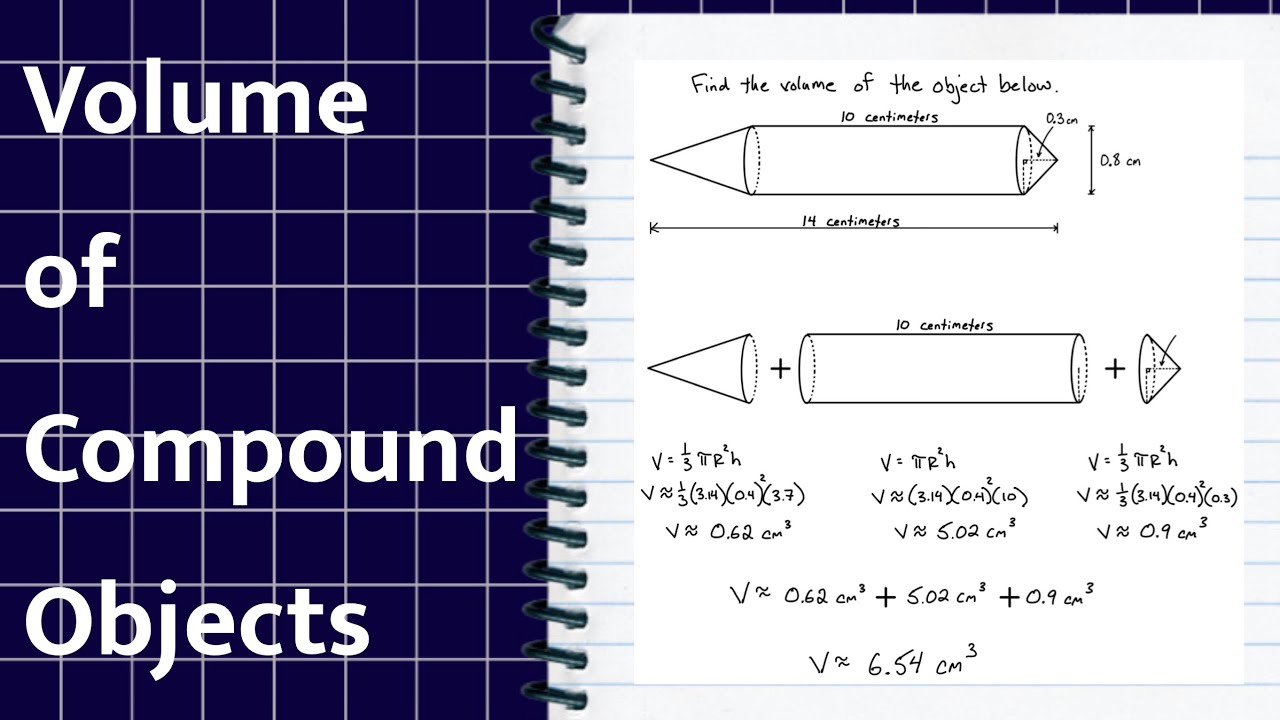 Volume
of
Compound
Objects
Find the volume of the object below.
10 centimeters
0.3 cm
0.8 cm
14 centimeters
10 centimeters
+
+
V = 1/3 πR²h
V ≈ 1/3(3.14)(0.4)²(3.7)
V ≈ 0.62 cm³
V = πR²h
V ≈ (3.14)(0.4)²(10)
V ≈ 5.02 cm³
V = 1/3 πR²h
V ≈ 1/3(3.14)(0.4)²(0.3)
V ≈ 0.9 cm³
V ≈ 0.62 cm³ + 5.02 cm³ + 0.9 cm³
V ≈ 6.54 cm³